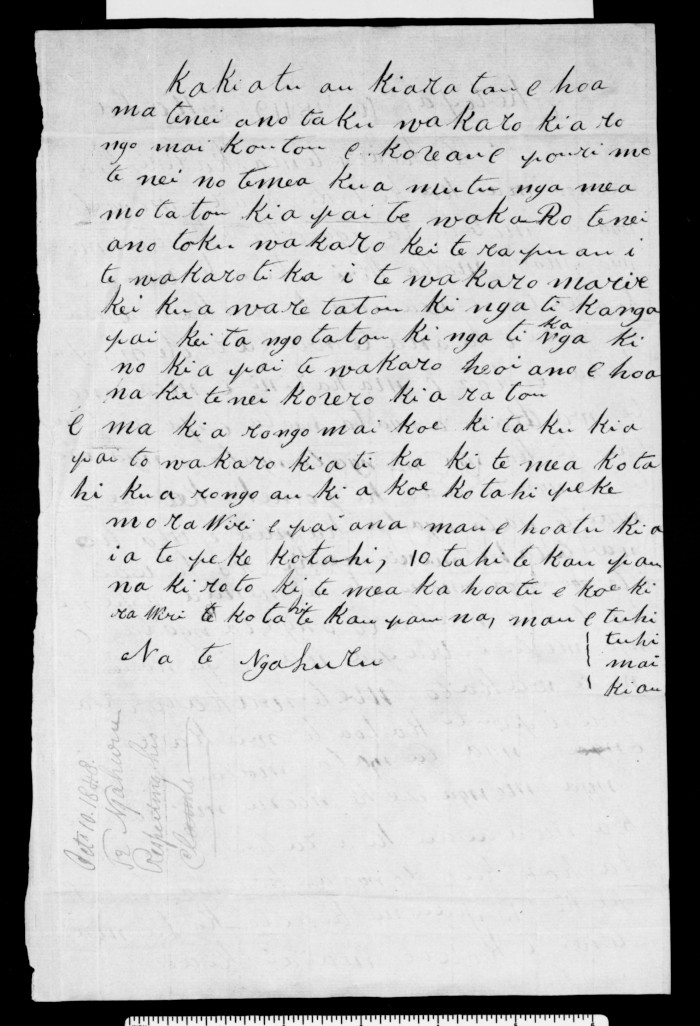 Kakiatu au kiaratou e hoa
ma tenei ano taku wakaro kia ro
ngo mai koutou e koreau e pouri mo
te nei no temea kua mutu nga mea
mo tatou kia pai te wakaRo tenei
ano toku wakaro kei te rapu au i
te wakaro tika i te wakaro marire
kei kua ware tatou ki nga ti kanga
pai kei ta ngo tatou ki nga ti ka nga ki
no kia pai te wakaro heoi ano e hoa
na ku te nei korero kia ra tou
E ma kia rongo mai koe ki taku kia
pai to wakaro kia ti ka ki te mea kota
hi kua rongo au ki a koe kotahi peke
mo ra Wiri e pai ana mau e hoatu kia
ia te peke kotahi, 10 tahi te kau pau
na ki roto ki te mea ka hoatu e koe ki
ra Wiri te kota hi te kau pau na, mau e tuhi
tuhi
mai
kiau
Na te Ngahuru
Octr 10. 1848.
Te Ngahuru
Respecting his
Claims